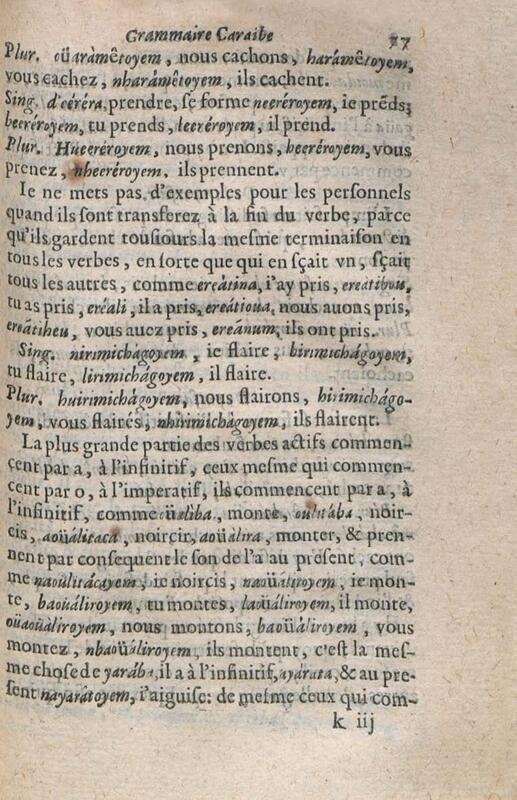 Grammaire Caraibe 77
Plur. oüaràmêtoyem, nous cachons, harámêtoyem,
vous cachez, nharámêtoyem, ils cachent.
Sing. d'eéréra, prendre, se forme neeréroyem, ie prẽds;
beeréroyem, tu prends, leeréroyem, il prend.
Plur. Hüeeréroyem, nous prenons, heeréroyem, vous
prenez, nheeréroyem, ils prennent.
Ie ne mets pas d'exemples pour les personnels
quand ils sont transferez à la fin du verbe, parce
qu'ils gardent tousiours la mesme terminaison en
tous les verbes, en sorte que qui en sçait vn, sçait
tous les autres, comme ereátina, i'ay pris, ereátibou,
tu as pris, ereáli, il a pris, ereátioua, nous auons pris,
ereátiheu, vous auez pris, ereánum, ils ont pris.
Sing. nirimichágoyem, ie flaire, birimichágoyem,
tu flaire, lirimichágoyem, il flaire.
Plur. huirimichágoyem, nous flairons, hirimichágo-
yem, vous flairés, nhirimichágoyem, ils flairent.
La plus grande partie des verbes actifs commen-
çent par a, à l'infinitif, ceux mesme qui commen-
cent par o, à l'imperatif, ils commencent par a, à
l'infinitif, comme oüaliba, monte, noir-
cis, aoüálitaca, noircir, aoüálira, monter, & pren-
nent par consequent le son de l'a au present, com-
me naoúlitácayem, ie noircis, naoüáliroyem, ie mon-
te, baoüáliroyem, tu montes, laoüáliroyem, il monte,
oüaoüáliroyem, nous montons, baoüáliroyem, vous
montez, nhaoüáliroyem, ils montent, c'est la mes-
me chose de yarába, il a à l'infinitif, ayárata, & au pre-
sent nayarátoyem, i'aiguise: de mesme ceux qui com-
k iij